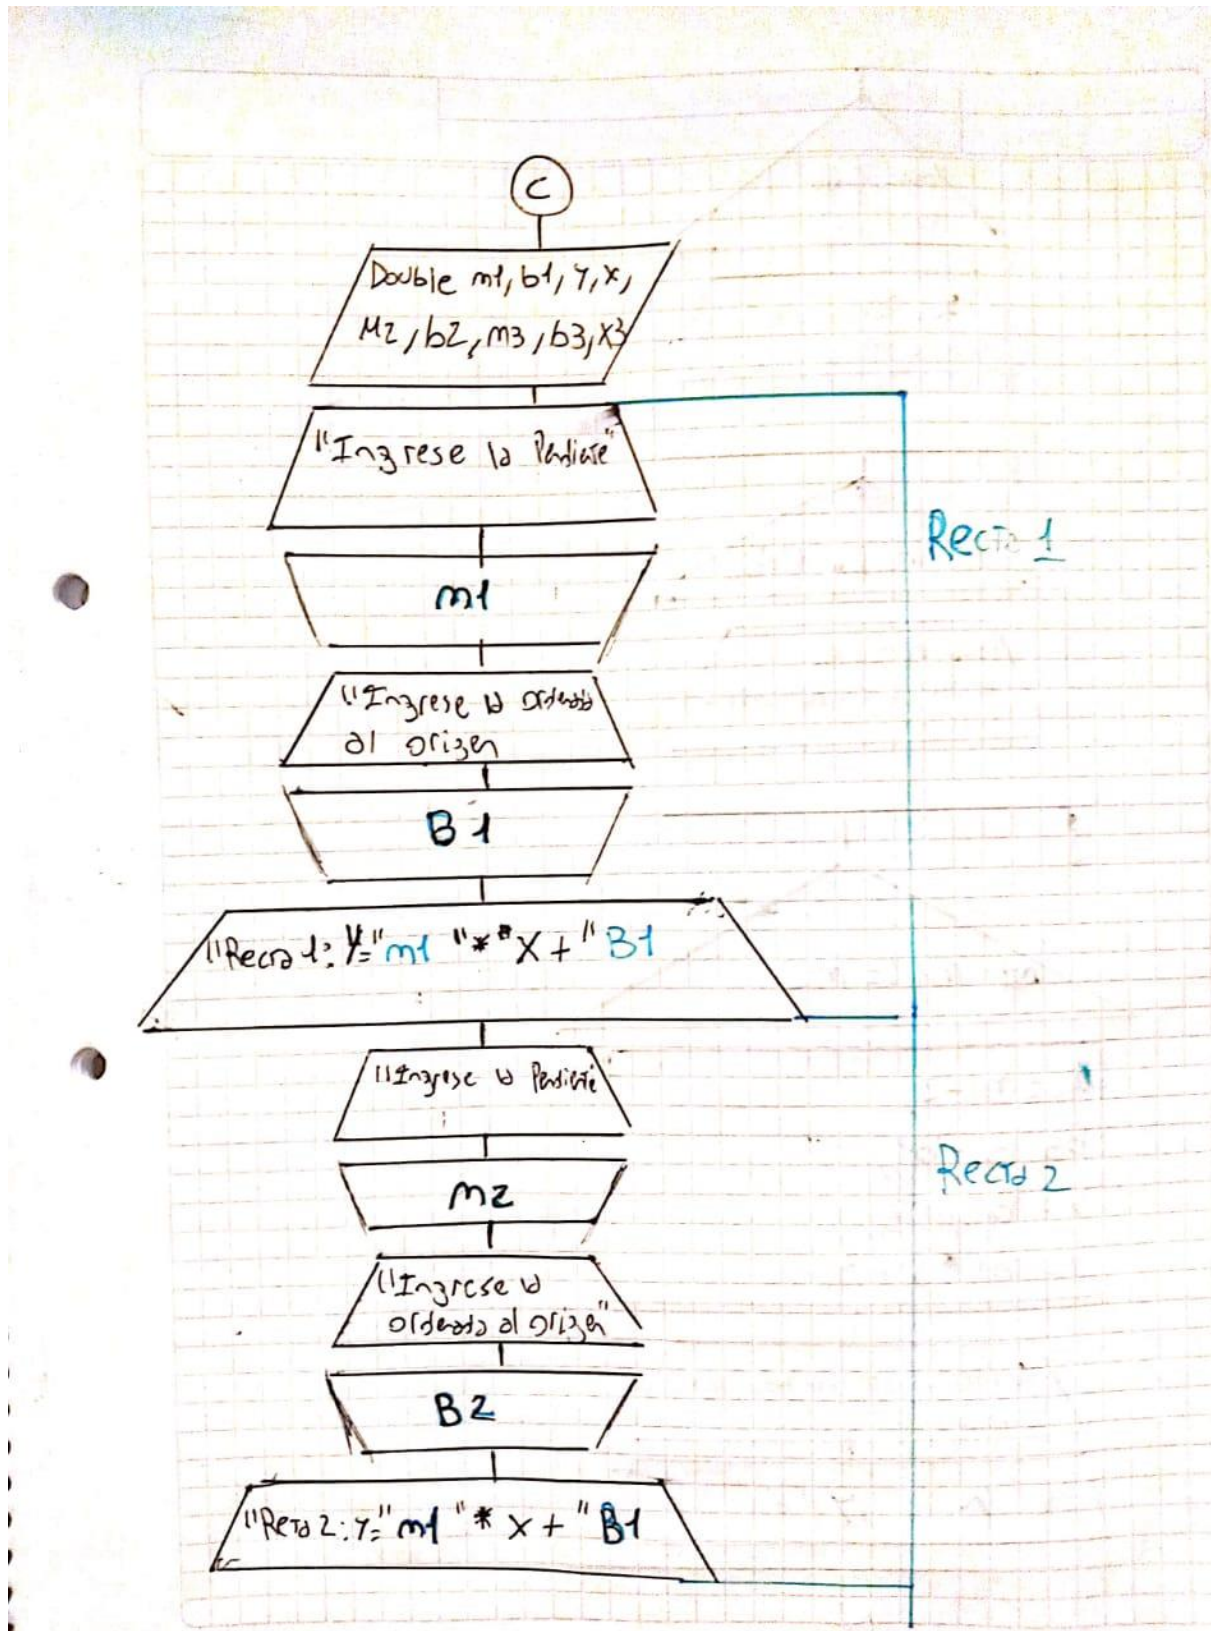 C
Double m1, b1, y, x,
M2, b2, m3, b3, x3
"Ingrese la Pendiente"
Recta 1
m1
"Ingrese la ordenada
al origen
B1
"Recta 1: Y="m1 "*" X + "B1
"Ingrese la Pendiente
m2
Recta 2
"Ingrese la
ordenada al origen"
B2
"Reta 2: y="m1 "* X + "B1